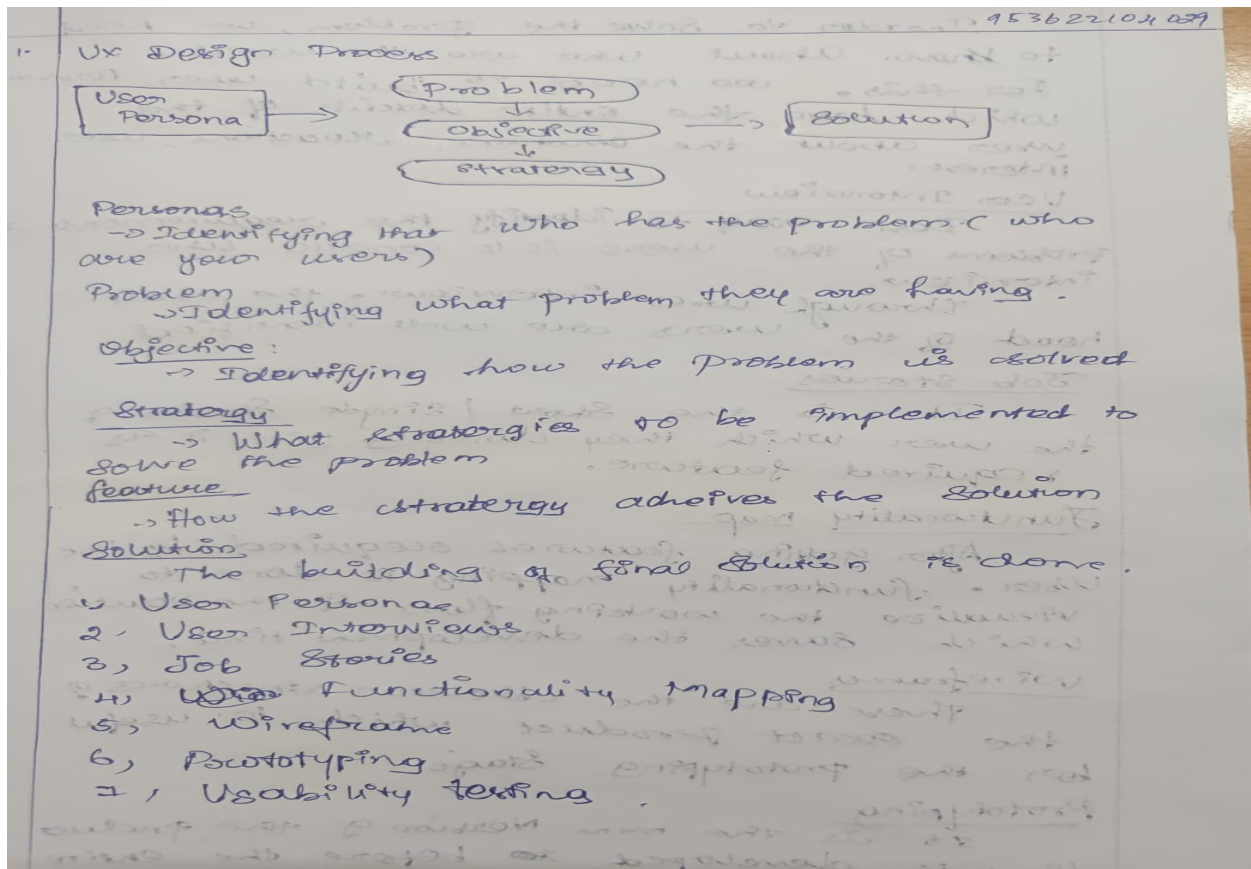 953622104029
1. UX Design Process
User Persona
Problem
Objective
Stratergy
Solution
Personas
-> Identifying that who has the problem. ( who
are your users)
Problem
-> Identifying what problem they are having.
Objective :
-> Identifying how the problem is solved
Stratergy
-> What stratergies to be implemented to
solve the problem
feature
-> How the stratergy adheives the solution
Solution
The building of final solution is done.
1, User Personas
2. User Interwiews
3, Job Stories
4, Functionality Mapping
5, Wireframe
6, Prototyping
7, Usability testing.